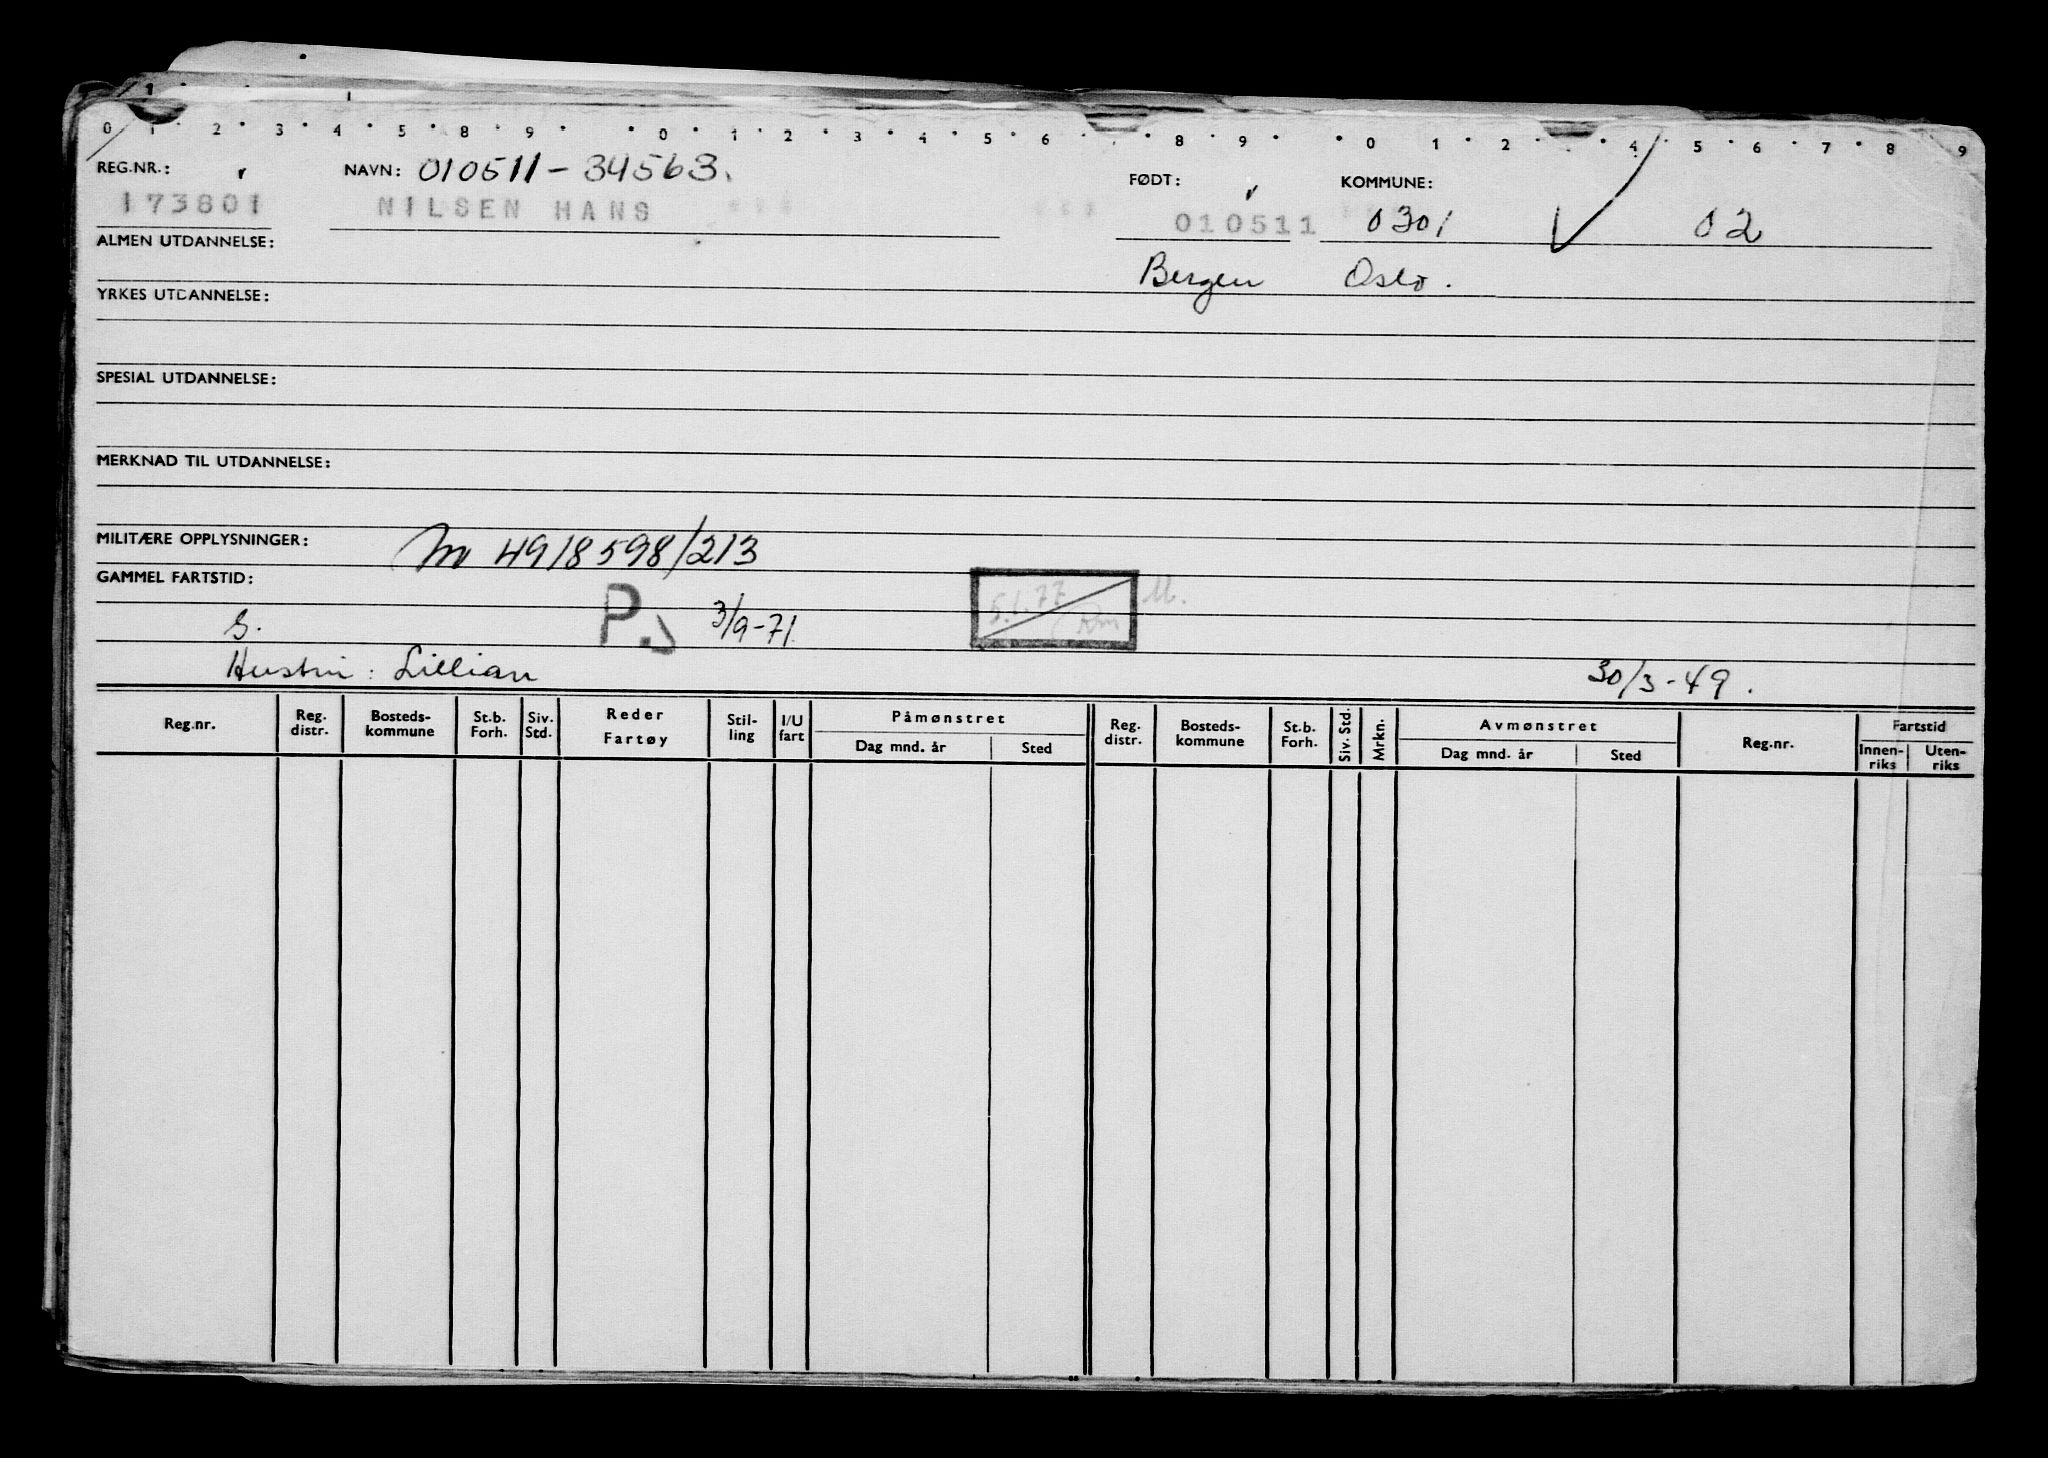 0 1 2 3 4 5 8 9 0 1 2 3 4 5 6 8 9 0 1 2 4 5 6 7 8 9
REG.NR.: NAVN: 010511-34563. FØDT: KOMMUNE:
173801 NILSEN HANS 010511 0301 02
ALMEN UTDANNELSE:
Bergen Oslo.
YRKES UTDANNELSE:
SPESIAL UTDANNELSE:
MERKNAD TIL UTDANNELSE:
MILITÆRE OPPLYSNINGER: M 4918598/213
GAMMEL FARTSTID:
5.1.77
S. P. 3/9-71
Hustru: Lillian 30/3-49.
Reg.nr. Reg. distr. Bosteds-kommune St.b. Forh. Siv. Std. Reder Fartøy Stil-ling I/U fart Påmønstret Dag mnd. år Sted Reg. distr. Bosteds-kommune St.b. Forh. Siv. Std. Mrkn. Avmønstret Dag mnd. år Sted Reg.nr. Fartstid Innen-riks Uten-riks